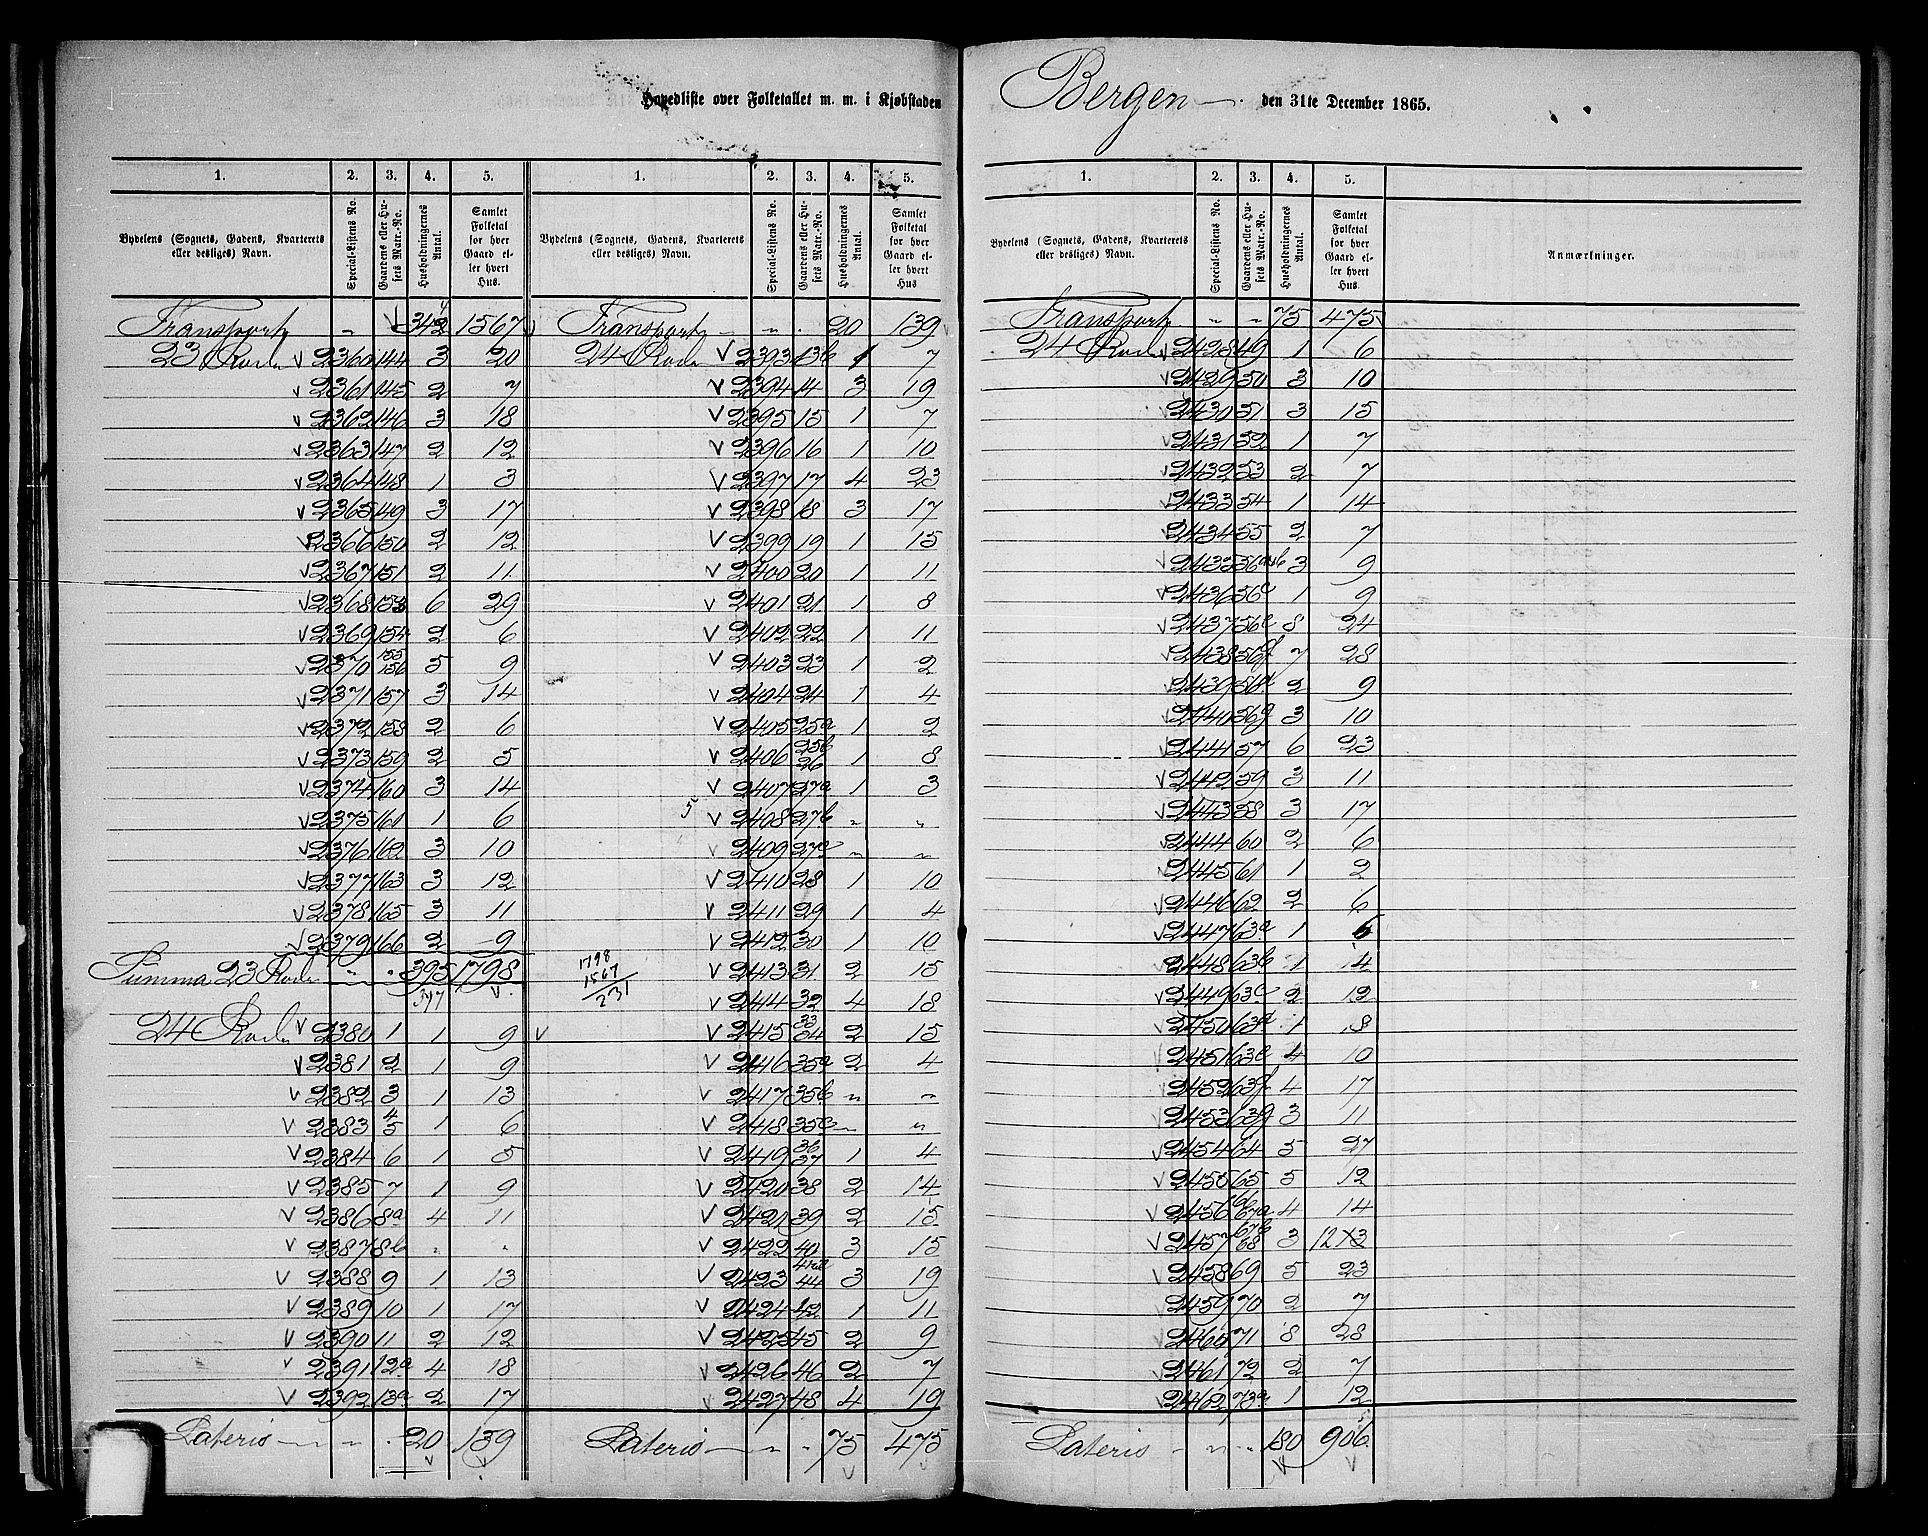 Hovedliste over Folketallet m. m. i Kjøbstaden Bergen den 31te December 1865.
1. 2. 3. 4. 5. 1. 2. 3. 4. 5.
Bydelens (Sognets, Gadens, Kvarterets eller desliges) Navn. Special-Listens No. Gaardens eller Husets Matr.-No. Husholdningernes Antal. Samlet Folketal for hver Gaard eller hvert Hus.
Bydelens (Sognets, Gadens, Kvarterets eller desliges) Navn. Special-Listens No. Gaardens eller Husets Matr.-No. Husholdningernes Antal. Samlet Folketal for hver Gaard eller hvert Hus
Transport 342 1567
23 Rode 2360 144 3 20
2361 145 2 7
2362 146 3 18
2363 147 2 12
2364 148 1 3
2365 149 3 17
2366 150 2 12
2367 151 2 11
2368 153 6 29
2369 154 2 6
2370 155 156 5 9
2371 157 3 14
2372 158 2 6
2373 159 2 5
2374 160 3 14
2375 161 1 6
2376 162 3 10
2377 163 3 12
2378 165 3 11
2379 166 2 9
Summa 23 Rode 395 1798
397
24 Rode 2380 1 1 9
2381 2 1 9
2382 3 1 13
2383 4 5 1 6
2384 6 1 5
2385 7 1 9
2386 8a 4 11
2387 8b " "
2388 9 1 13
2389 10 1 17
2390 11 2 12
2391 12a 4 18
2392 13a 2 17
Lateris 20 139
Transport 20 139
24 Rode 2393 13b 1 7
2394 14 3 19
2395 15 1 7
2396 16 1 10
2397 17 4 23
2398 18 3 17
2399 19 1 15
2400 20 1 11
2401 21 1 8
2402 22 1 11
2403 23 1 2
2404 24 1 4
2405 25a 1 2
2406 25b 26 1 8
2407 27a 1 3
2408 27b " "
2409 27c " "
2410 28 1 10
2411 29 1 4
2412 30 1 10
1798
1567
231
2413 31 2 15
2414 32 4 18
2415 33 34 2 15
2416 35a 2 4
2417 35b " "
2418 35c " "
2419 36 37 1 4
2420 38 2 14
2421 39 2 15
2422 40 3 15
2423 44 3 19
2424 42 1 11
2425 45 2 9
2426 46 2 7
2427 48 4 19
Lateris 75 475
1. 2. 3. 4. 5.
Bydelens (Sognets, Gadens, Kvarterets eller desliges) Navn. Special-Listens No. Gaardens eller Husets Matr.-No. Husholdningernes Antal. Samlet Folketal for hver Gaard eller hvert Hus. Anmærkninger.
Transport 75 475
24 Rode 2428 49 1 6
2429 50 3 10
2430 51 3 15
2431 52 1 7
2432 53 2 7
2433 54 1 14
2434 55 2 7
2435 56a&b 3 9
2436 56c 1 9
2437 56e 8 24
2438 56f 7 28
2439 56d 2 9
2440 56g 3 10
2441 57 6 23
2442 59 3 11
2443 58 3 17
2444 60 2 6
2445 61 1 2
2446 62 2 6
2447 63a 1 6
2448 63b 1 4
2449 63c 2 12
2450 63d 1 8
2451 63e 4 10
2452 63f 4 17
2453 63g 3 11
2454 64 5 27
2455 65 5 12
2456 66 67a 4 14
2457 67b 68 3 12
2458 69 5 23
2459 70 2 7
2460 71 8 28
2461 72 2 7
2462 73a 1 12
Lateris 180 906